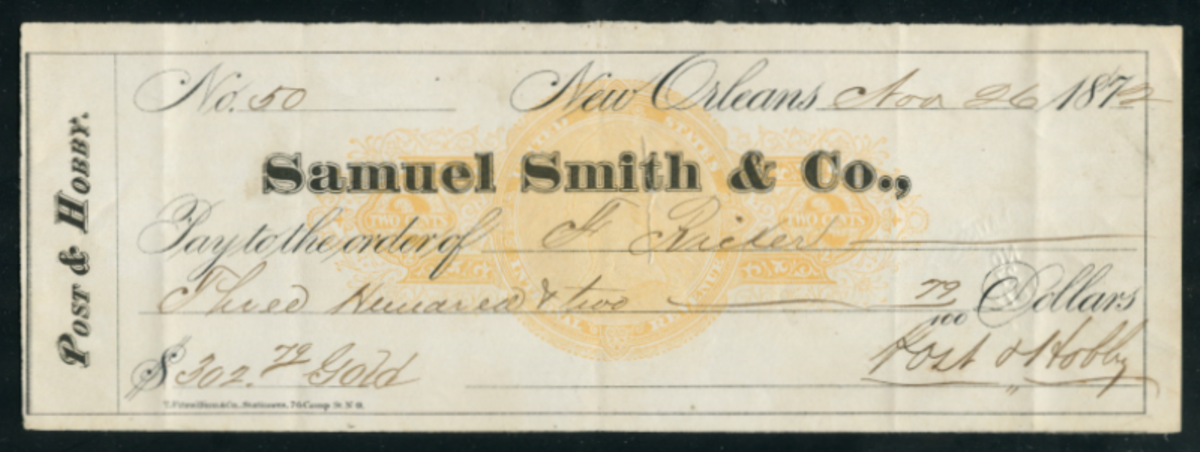 POST & HOBBY.
No. 50 New Orleans Nov 26 1872
Samuel Smith & Co.,
UNITED STATES
TWO CENTS TWO CENTS
Pay to the order of F Ricker
Three Hundred & two 79/100 Dollars
$302.79 Gold Post & Hobby
INTERNAL REVENUE
& Co., Stationers, 76 Camp St. N.O.